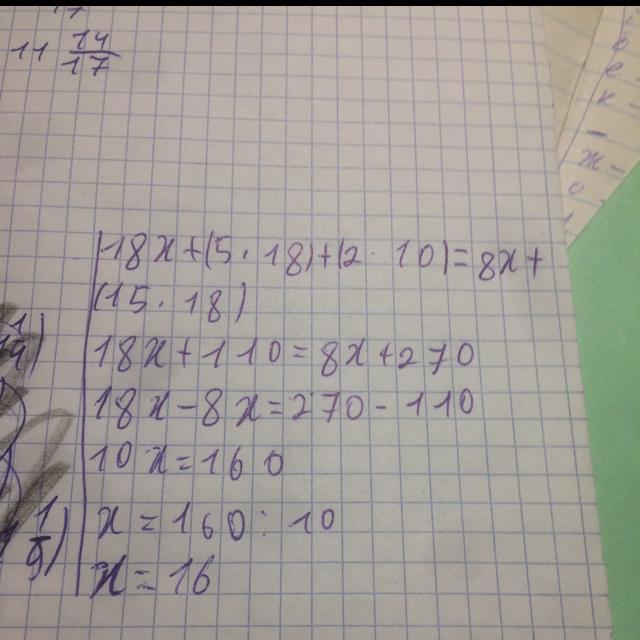 11 14/17
18x+(5·18)+(2·10)=8x+
(15·18)
18x+110=8x+270
18x-8x=270-110
10x=160
x=160:10
x=16